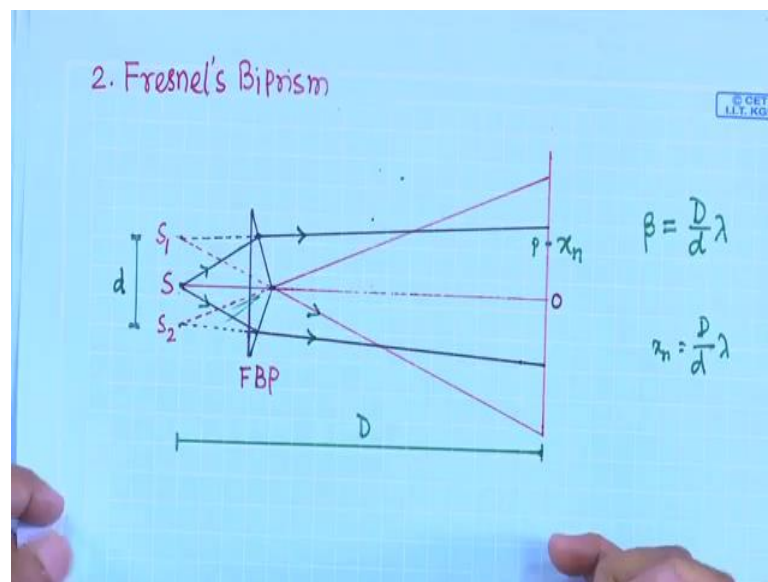 2. Fresnel's Biprism
© CET
I.I.T. KG
S₁
S
S₂
d
FBP
P
xₙ
O
D
β = D/d λ
xₙ = D/d λ